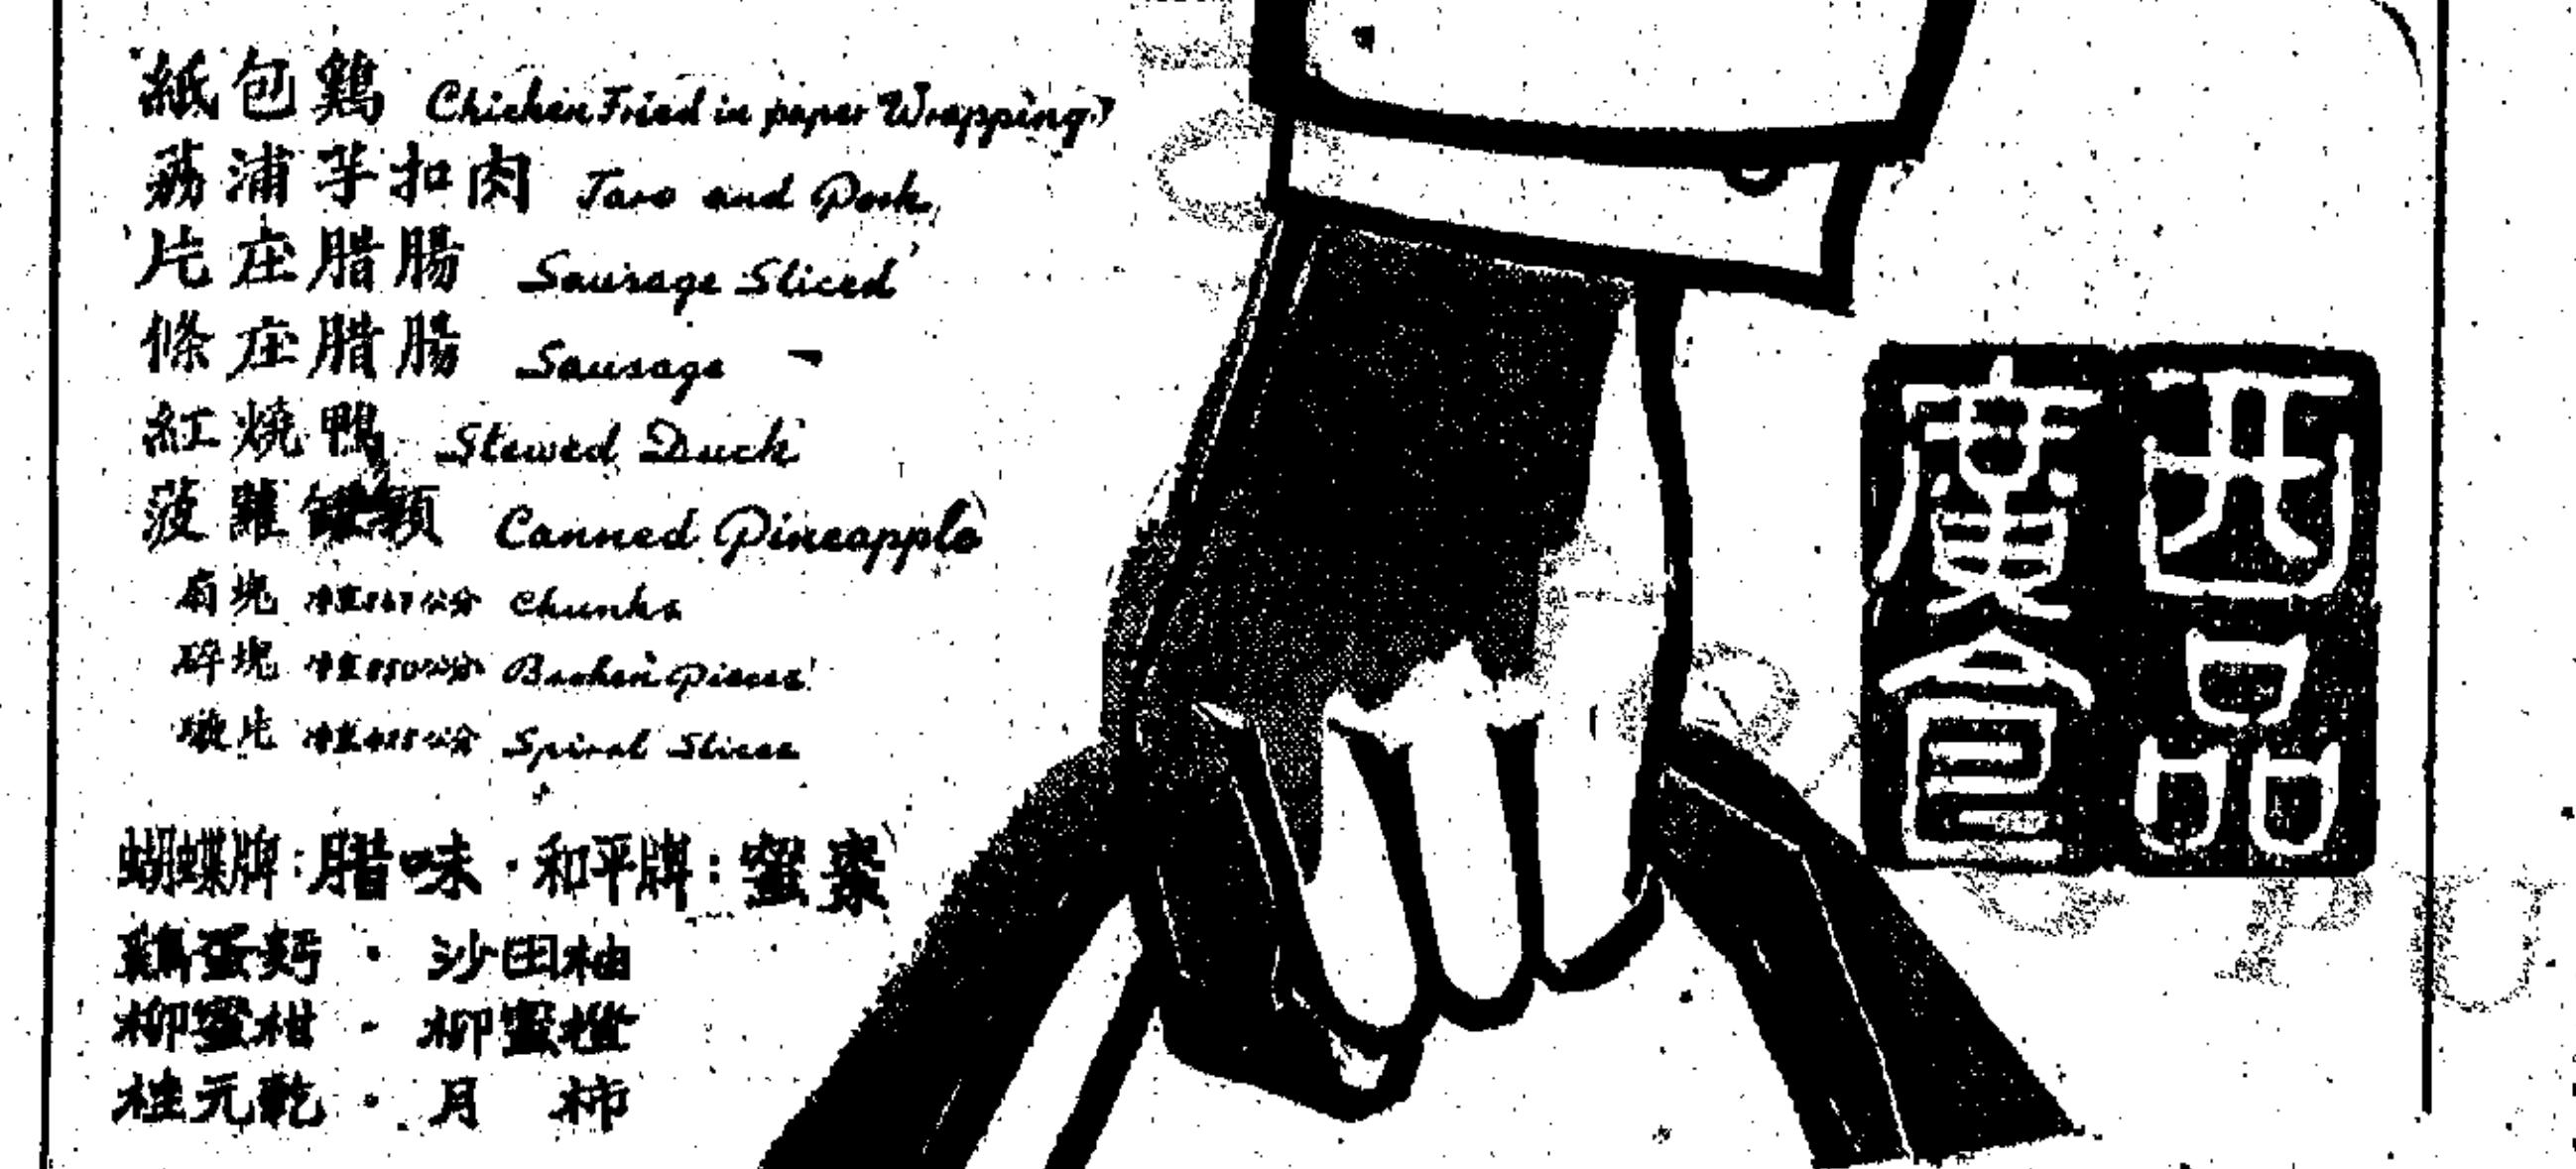 紙包鷄 Chicken Fried in paper Wrapping
荔浦芋扣肉 Taro and Pork
片庄腊腸 Sausage Sliced
條庄腊腸 Sausage
紅燒鴨 Stewed Duck
菠蘿罐頭 Canned Pineapple
扇塊 净重 公分 Chunks
碎塊 净重850公分 Broken Pieces
片 净重 公分 Spiral Slices
蝴蝶牌:腊味·和平牌:蜜棗
鷄蛋麪·沙田柚
柳蜜柑·柳蜜橙
桂元乾·月柿
西品
廣食